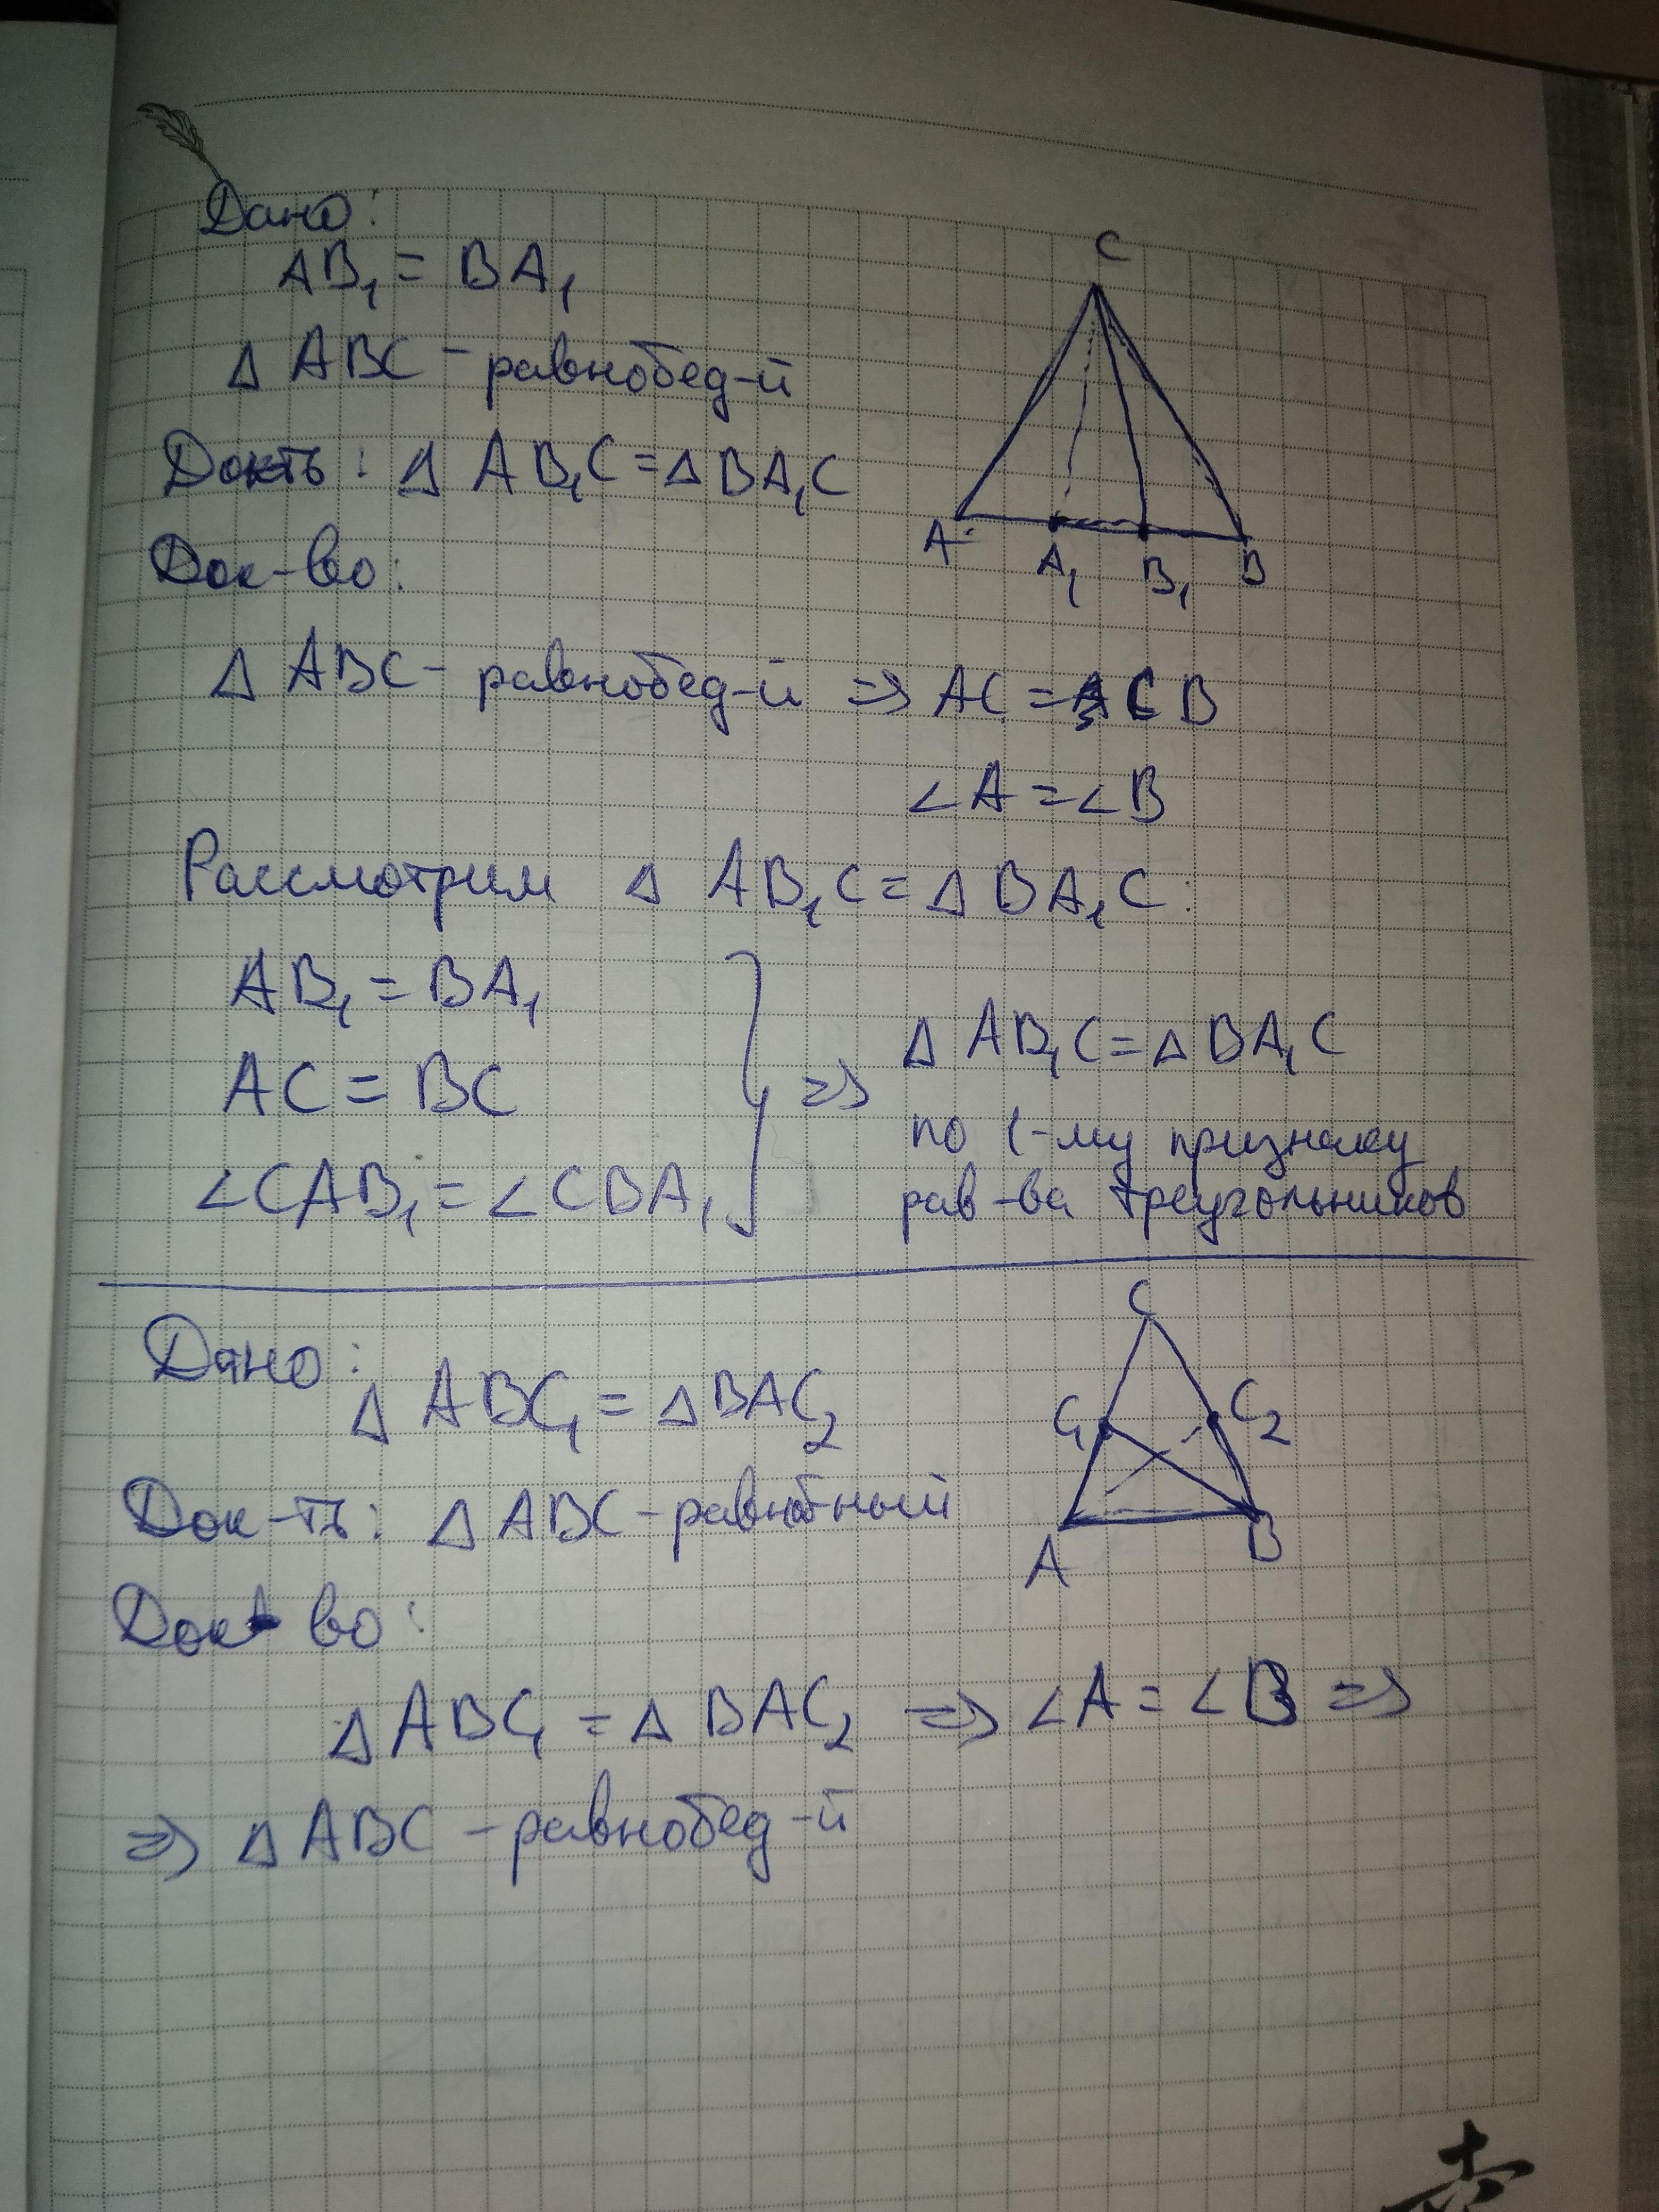 Дано:
AB₁ = BA₁
C
Δ ABC - равнобед-й
Док-ть: Δ AB₁C = Δ BA₁C
A A₁ B₁ B
Док-во:
Δ ABC - равнобед-й ⇒ AC = CB
∠A = ∠B
Рассмотрим Δ AB₁C = Δ BA₁C:
AB₁ = BA₁
AC = BC
∠CAB₁ = ∠CBA₁
⇒ Δ AB₁C = Δ BA₁C
по 1-му признаку
рав-ва треугольников
C
Дано:
Δ ABC₁ = Δ BAC₂
C₁ C₂
Док-ть: Δ ABC - равноб-ный
A B
Док во:
Δ ABC₁ = Δ BAC₂ ⇒ ∠A = ∠B ⇒
⇒ Δ ABC - равнобед-й